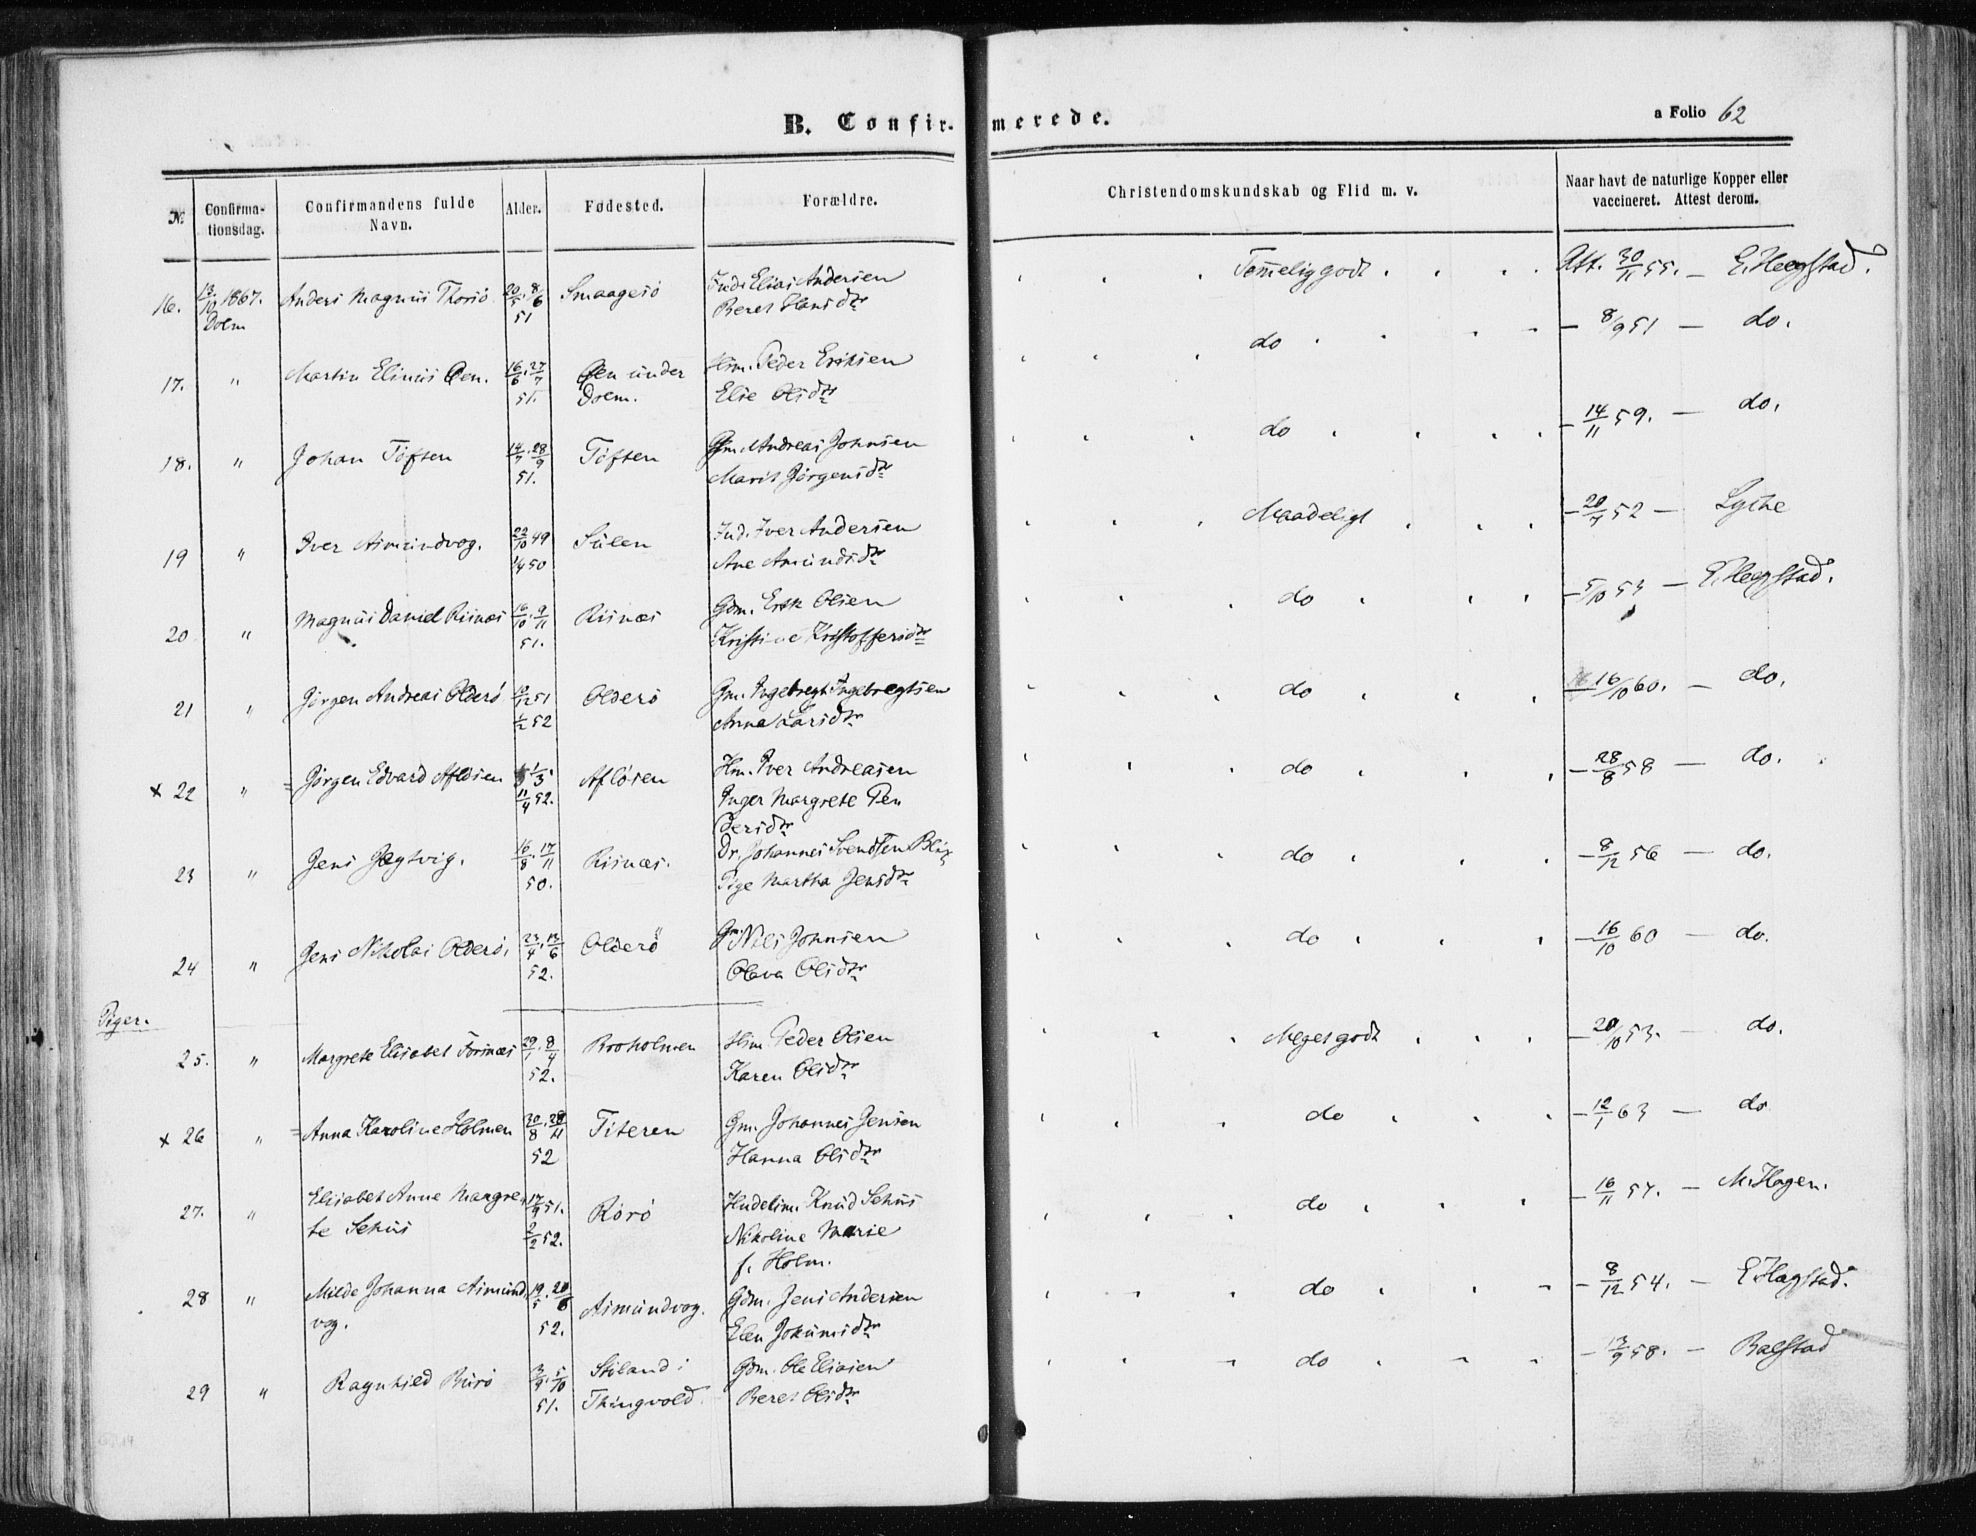 B. Confirmerede.
a Folio 62
No. Confirmationsdag. Confirmandens fulde Navn. Alder. Fødested. Forældre. Christendomskundskab og Flid m. v. Naar havt de naturlige Kopper eller vaccineret. Attest derom.
16. 13/10 1867. Anders Magnus Thorsö 20/5. 8/6 Smaagesö Inds Elias Andersen Temelig godt Att. 30/11 55. – E. Hegstad.
Dolm 51 Beret Hansdtr
17. " Martin Elinus Øen. 16/6. 27/7 Øen under Hm. Peder Eriksen do – 8/9 51 – do.
51. Dolm. Elie Olsdtr
18. " Johan Töften 14/7. 28/9 Töften Gm. Andreas Johnsen do – 14/11 59. – do.
51. Marit Jörgensdtr
19 " Iver Asmundvog. 22/10 49 Sulen Ind. Iver Andersen Maadeligt – 20/7 52 – Lythe
1/4 50 Ane Amundsdtr
20 " Magnus Daniel Risnæs 16/10. 9/11 Risnæs Gdm. Erik Olsen do – 5/10 53 – E. Hegstad.
51. Kristine Kristoffersdtr
21 " Jörgen Andreas Olderö 51 Olderö Gm. Ingebregt Ingebregtsen do – 16/10 60. – do.
1/2 52 Anna Larsdtr
x 22 " = Jörgen Edvard Aflösen 1/3. Aflösen Hm. Iver Andreasen do – 28/8 58 – do.
11/4 52. Inger Margrete Pe
dersdtr
23 " Jens Jægtvig. 16/8. 17/11 Risnæs. Dr. Johannes Svendsen do – 8/12 56 – do.
50. Pige Martha Jensdtr
24 " Jens Nikolai Olderö, 23/4. 13/6 Olderö Gm Nils Johnsen do – 16/10 60 – do.
52. Olava Olsdtr
Piger.
25. " Margrete Elisabet Forsnæs 29/1. 8/4 Broholmen Hm Peder Olsen Meget godt – 20/10 53. – do.
52. Karen Olsdtr
x 26 " = Anna Karoline Holmen 30/8. 28/11 Titeren Gm. Johannes Jensen do – 12/1 63 – do
52 Hanna Olsdtr
27. " Elisabet Anne Margre- 17/9 51. Rörö Hudelsm. Knud Sehus do – 16/11 54. – M. Hagen.
te Sehus 2/2 52. Nikoline Marie
f. Holm.
28 " Milde Johanna Asmund 19/5. 20/6 Asmundvog. Gdm. Jens Andersen do – 8/12 54. – E Hagstad.
vog. 52. Elen Jokumsdtr
29 " Ragnhild Burö 3/9. 5/10 Stöland i Gdm. Ole Eliasen do – 13/9 58. – Balstad
51. Thingvold. Beret Olsdtr